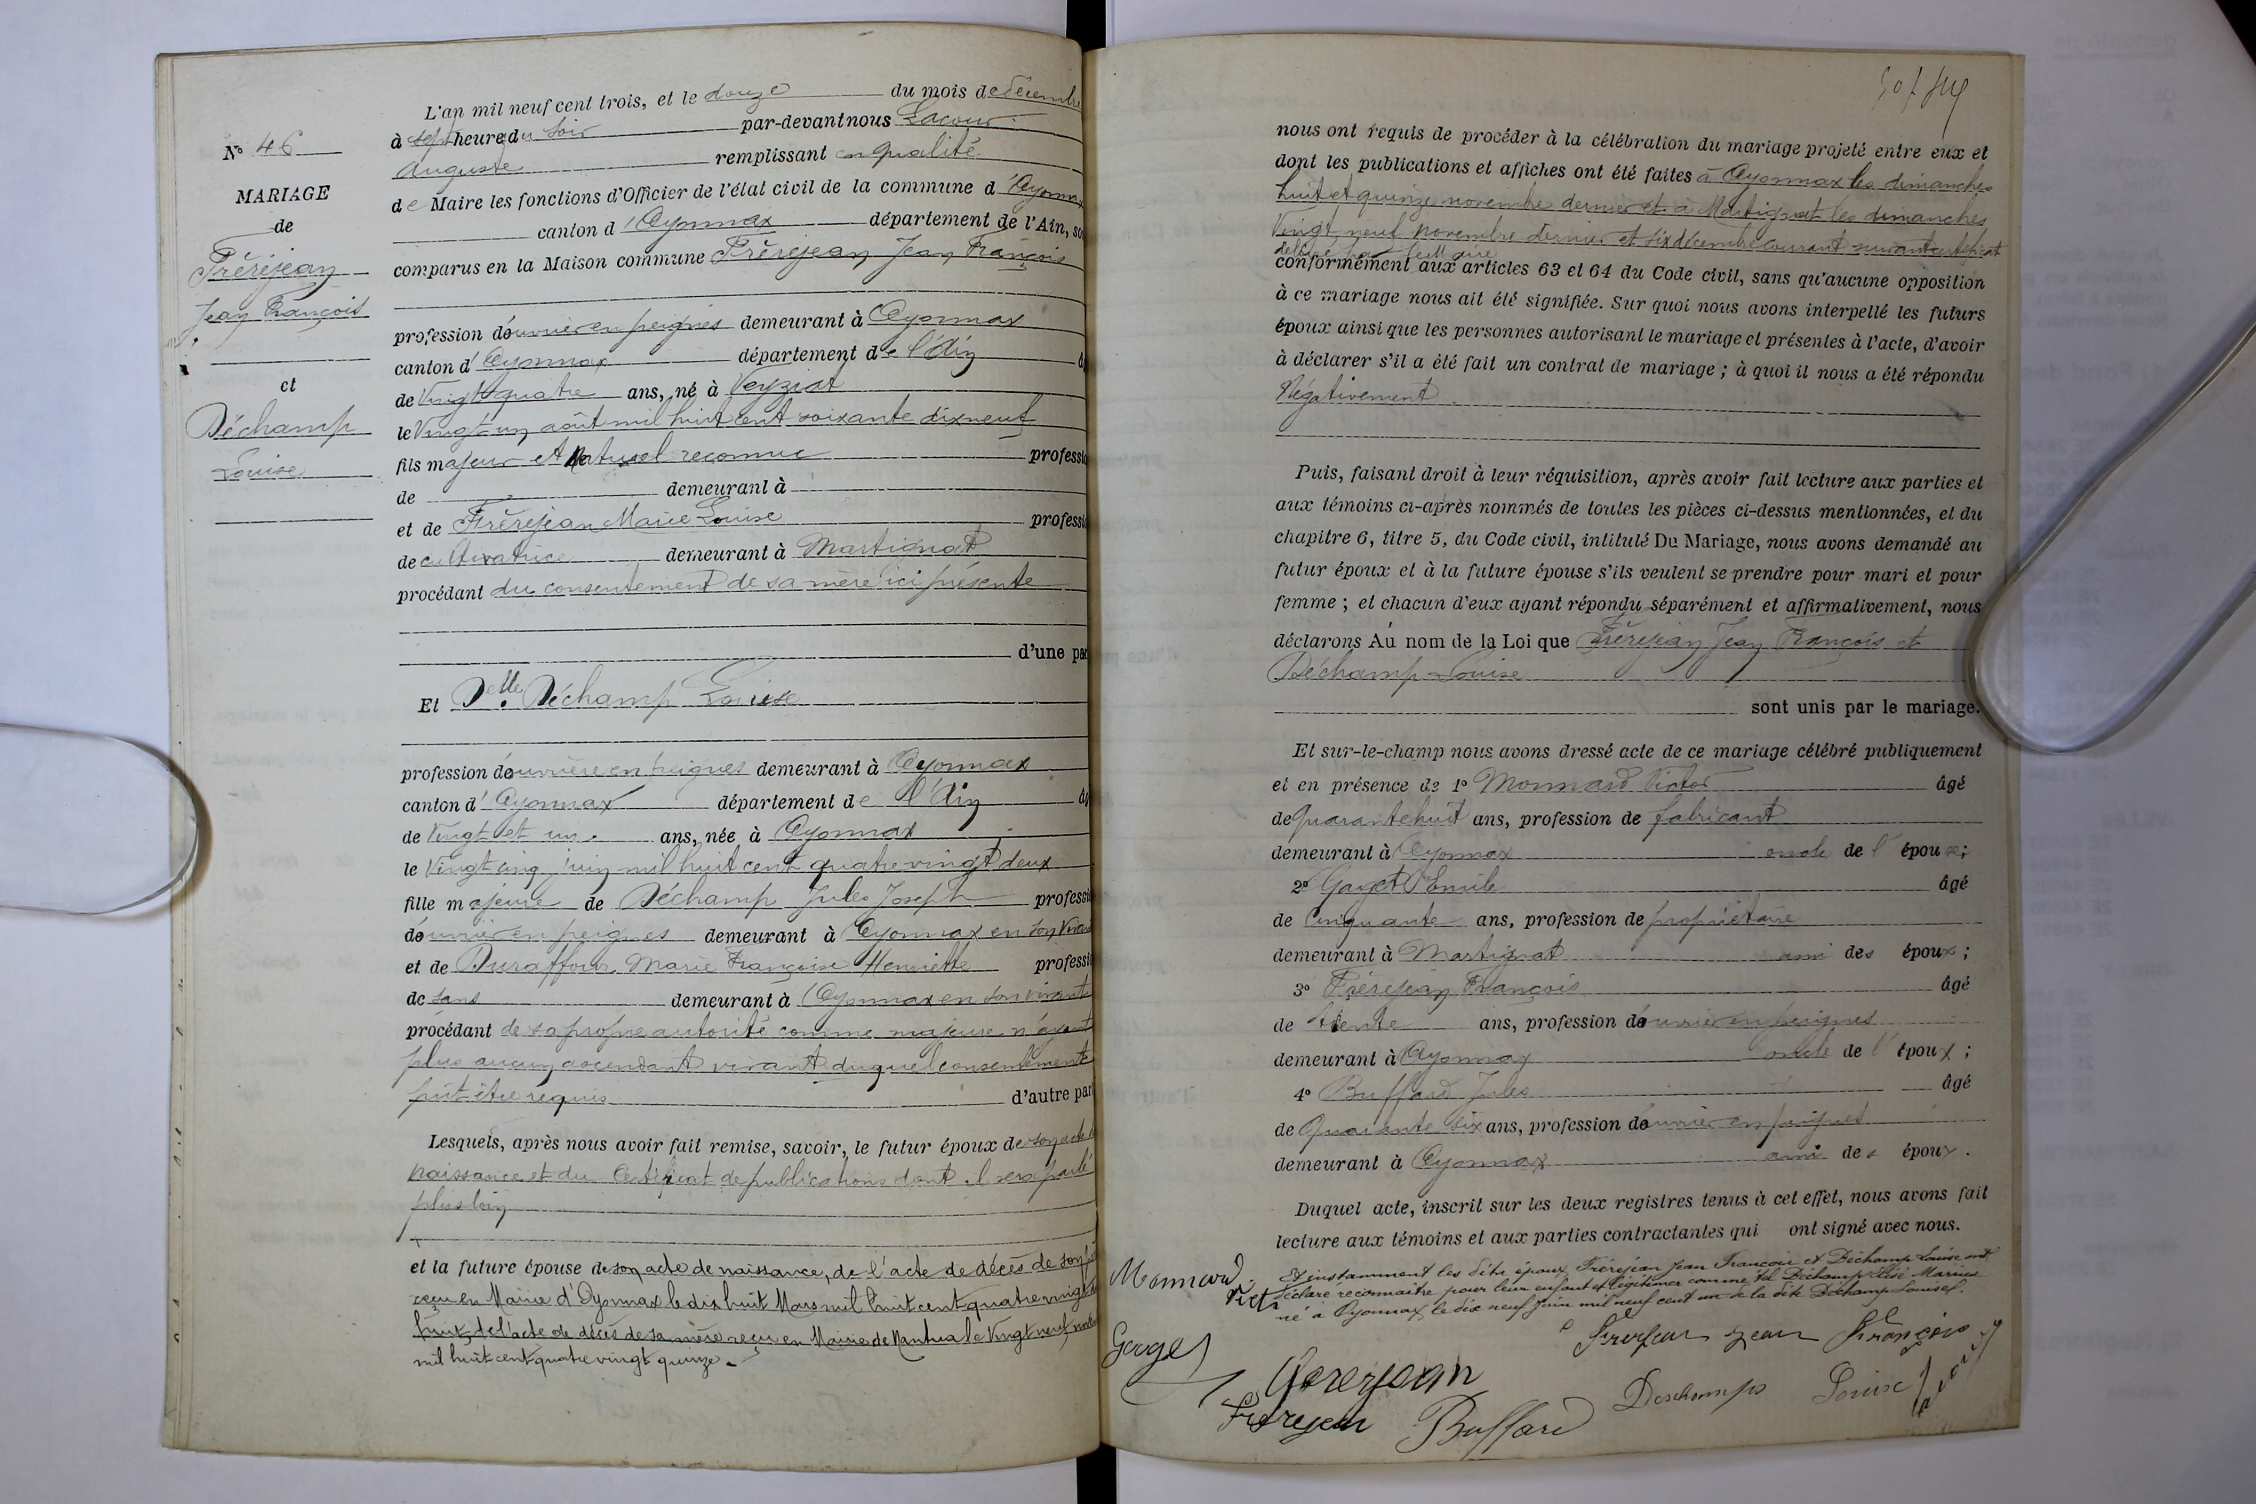 L'an mil neuf cent trois, et le douze du mois de Décembre
à sept heures du soir par-devant nous Lacour
N° 46
Auguste remplissant en qualité
MARIAGE
de Maire les fonctions d'Officier de l'état civil de la commune d'Oyonnax
de
canton d'Oyonnax département de l'Ain, so
Frèrejean
comparus en la Maison commune Frèrejean Jean François
Jean François
profession d'ouvrier en peignes demeurant à Oyonnax
canton d'Oyonnax département de l'Ain
et
de Vingt quatre ans, né à Veyziat
Déchamp
le Vingt un août mil huit cent soixante dix neuf
Louise
fils majeur et Naturel reconnu professi
de demeurant à
et de Frèrejean Marie Louise professi
de cultivatrice demeurant à Martignat
procédant du consentement de sa mère ici présente
d'une par
Et Delle Déchamp Louise
profession d'ouvrière en peignes demeurant à Oyonnax
canton d'Oyonnax département de l'Ain
de Vingt et un ans, née à Oyonnax
le Vingt cinq juin mil huit cent quatre vingt deux
fille majeure de Déchamp Jules Joseph professi
d'ouvrier en peignes demeurant à Oyonnax en son vivant
et de Duraffour Marie Françoise Henriette professi
de sans demeurant à Oyonnax en son vivant
procédant de sa propre autorité comme majeure n'ayant
plus aucun ascendant vivant duquel consentement
put être requis d'autre par
Lesquels, après nous avoir fait remise, savoir, le futur époux de son acte de
naissance et du certificat de publications dont il sera parlé
plus loin
et la future épouse de son acte de naissance, de l'acte de décès de son père
reçu en Mairie d'Oyonnax le dix huit Mars mil huit cent quatre vingt
huit, de l'acte de décès de sa mère reçu en Mairie de Nantua le Vingt neuf
mil huit cent quatre vingt quinze.
nous ont requis de procéder à la célébration du mariage projeté entre eux et
dont les publications et affiches ont été faites à Oyonnax les dimanches
huit et quinze novembre dernier et à Martignat les dimanches
Vingt neuf novembre dernier et six décembre courant suivant certificat
délivré par le Maire
conformément aux articles 63 et 64 du Code civil, sans qu'aucune opposition
à ce mariage nous ait été signifiée. Sur quoi nous avons interpellé les futurs
époux ainsi que les personnes autorisant le mariage et présentes à l'acte, d'avoir
à déclarer s'il a été fait un contrat de mariage ; à quoi il nous a été répondu
Négativement
Puis, faisant droit à leur réquisition, après avoir fait lecture aux parties et
aux témoins ci-après nommés de toutes les pièces ci-dessus mentionnées, et du
chapitre 6, titre 5, du Code civil, intitulé Du Mariage, nous avons demandé au
futur époux et à la future épouse s'ils veulent se prendre pour mari et pour
femme ; et chacun d'eux ayant répondu séparément et affirmativement, nous
déclarons Au nom de la Loi que Frèrejean Jean François et
Déchamp Louise
sont unis par le mariage.
Et sur-le-champ nous avons dressé acte de ce mariage célébré publiquement
et en présence de 1° Monnard Victor âgé
de Quarante huit ans, profession de fabricant
demeurant à Oyonnax oncle de l'époux;
2° Gayet Emile âgé
de Cinquante ans, profession de propriétaire
demeurant à Martignat ami des époux ;
3° Frèrejean François âgé
de trente ans, profession d'ouvrier en peignes
demeurant à Oyonnax oncle de l'époux ;
4° Buffard Jules âgé
de Quarante six ans, profession d'ouvrier en peignes
demeurant à Oyonnax ami des époux.
Duquel acte, inscrit sur les deux registres tenus à cet effet, nous avons fait
lecture aux témoins et aux parties contractantes qui ont signé avec nous.
Et instamment les dits époux, Frèrejean Jean François et Déchamp Louise ont
déclaré reconnaître pour leur enfant et légitimer comme tel Déchamp Marius
né à Oyonnax le dix neuf Juin mil neuf cent un de la dite Déchamp Louise.
Monnard
Vict
Frerejean Jean François
Gayet
Frerejean
Deschamps Louise
Frerejean
Buffard
Lacour